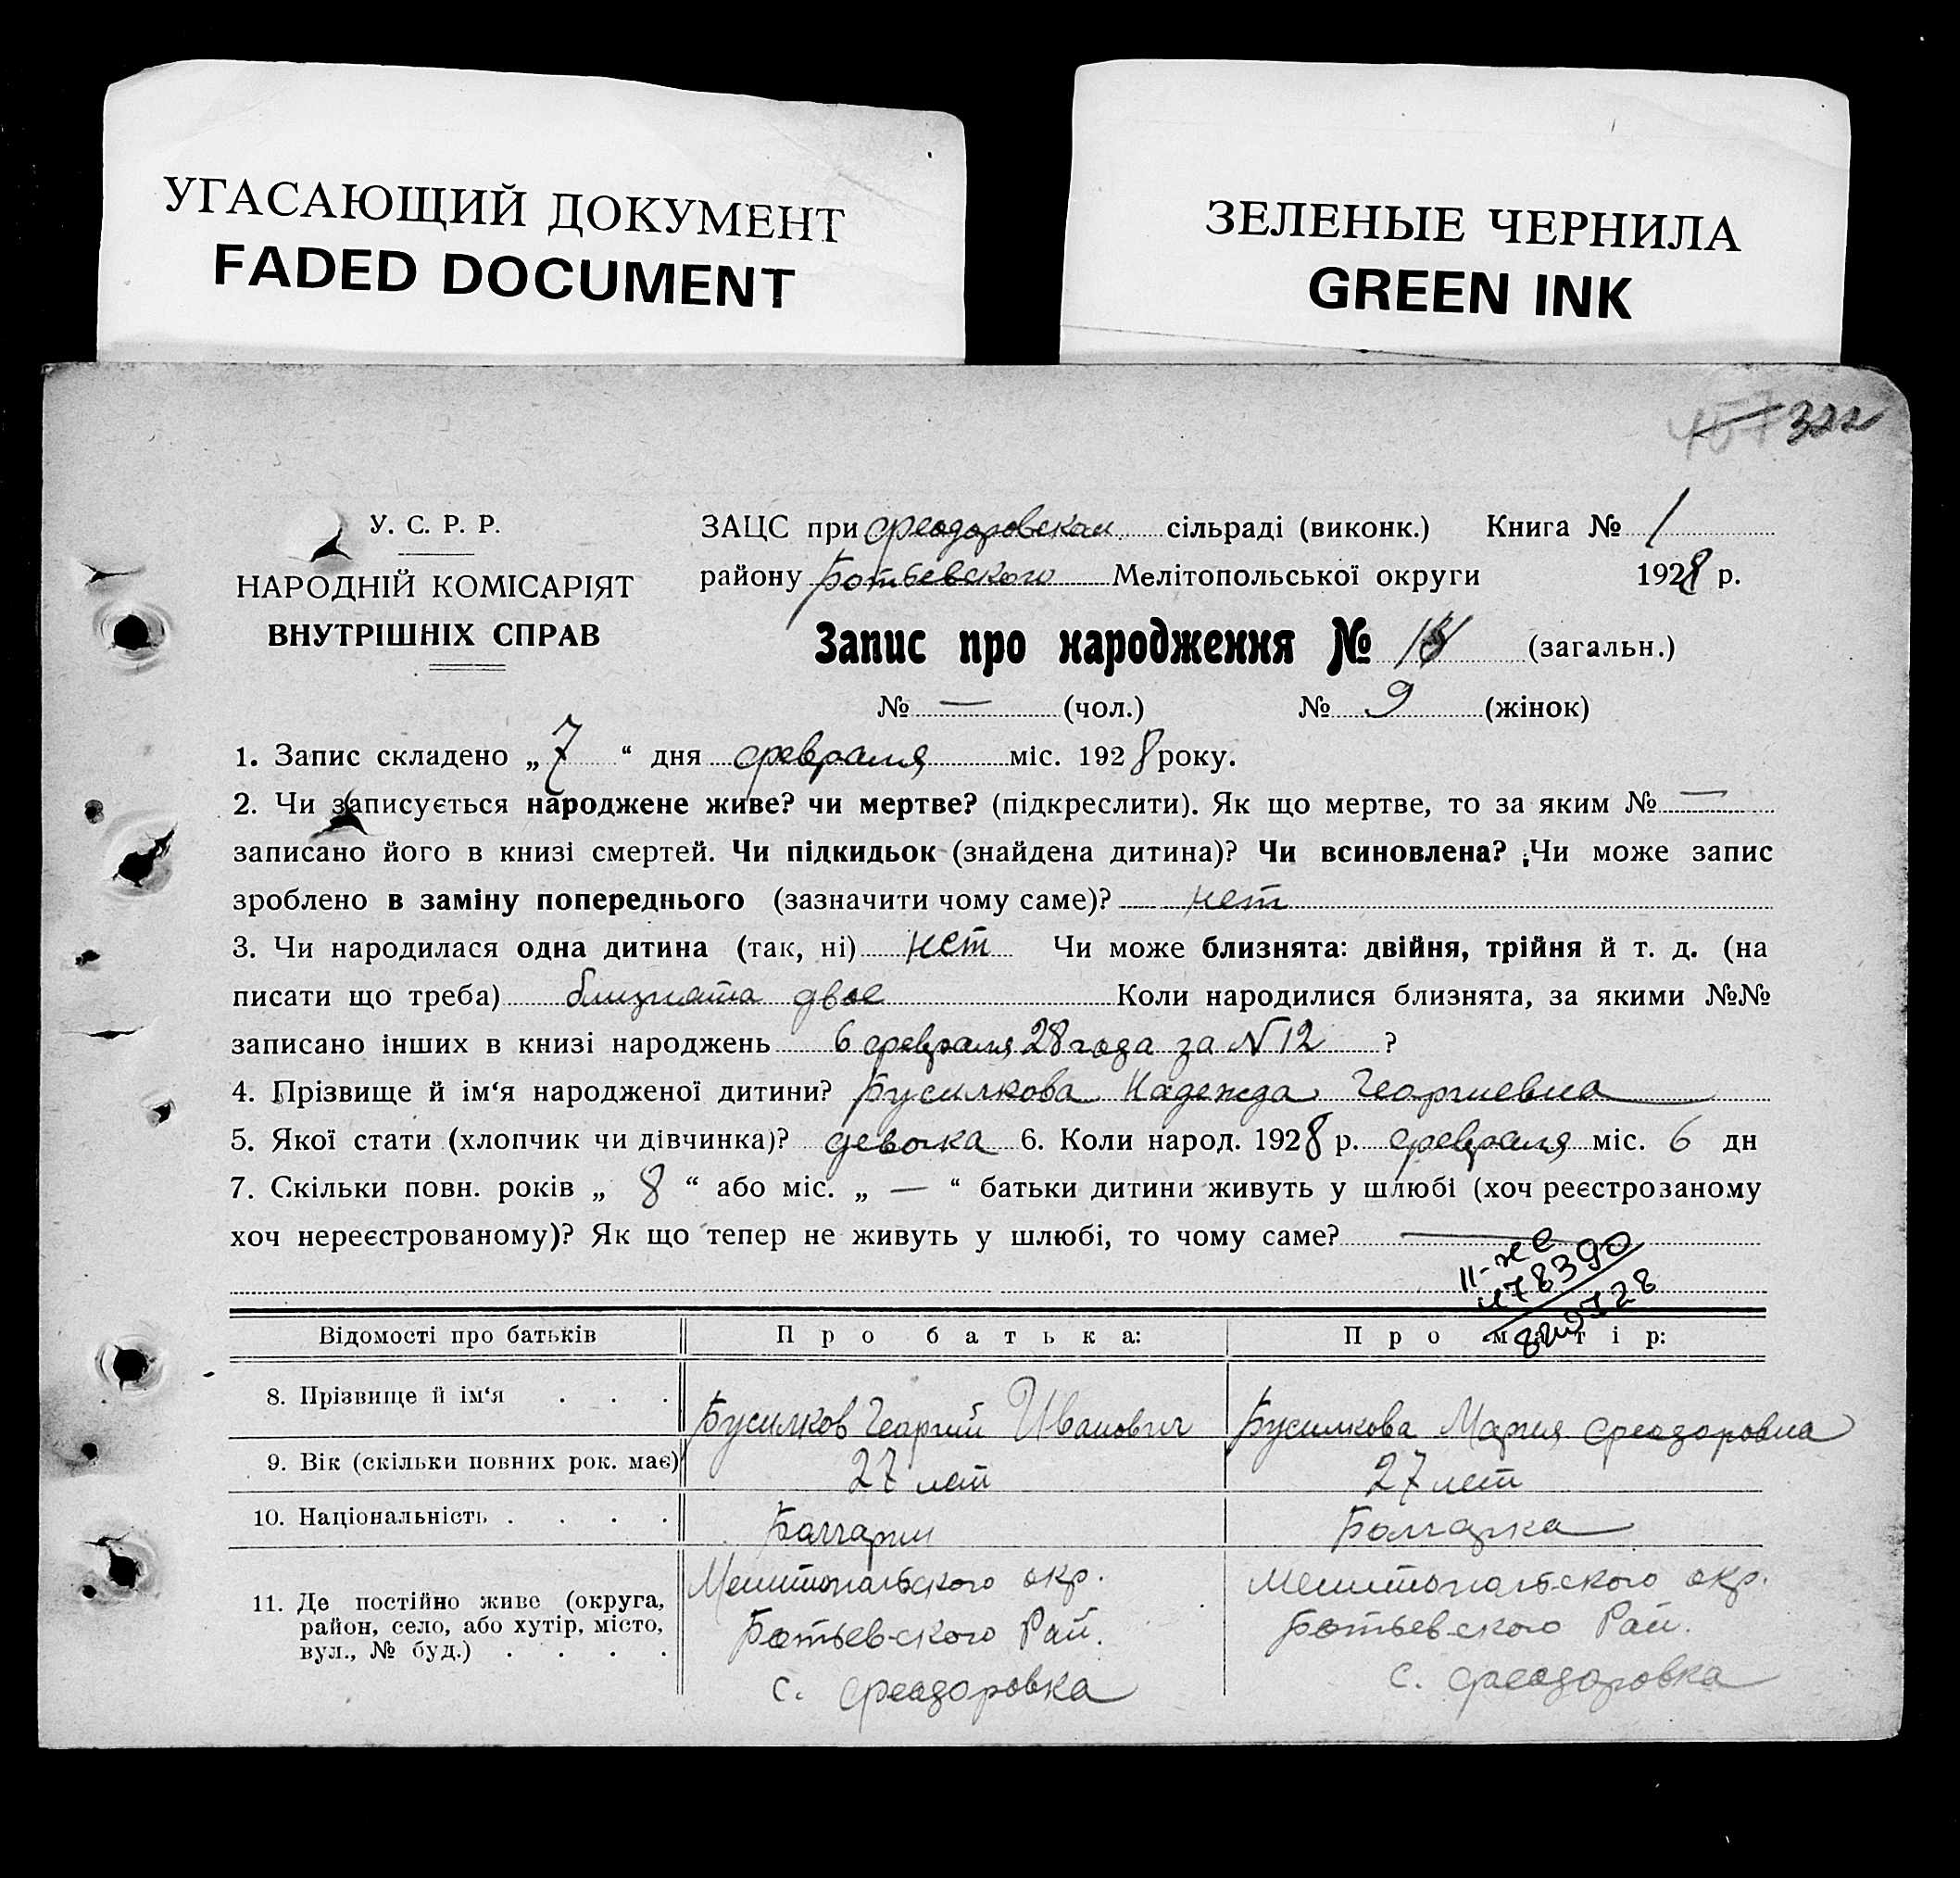 УГАСАЮЩИЙ ДОКУМЕНТ
FADED DOCUMENT
ЗЕЛЕНЫЕ ЧЕРНИЛА
GREEN INK
322
У. С. Р. Р.
НАРОДНІЙ КОМІСАРІЯТ
ВНУТРІШНІХ СПРАВ
ЗАЦС при Феодоровском сільраді (виконк.) Книга № 1
району Ботьевского Мелітопольської округи 1928 р.
Запис про народження № (загальн.)
№ — (чол.) № 9 (жінок)
1. Запис складено „ 7 “ дня февраля міс. 1928 року.
2. Чи записується народжене живе? чи мертве? (підкреслити). Як що мертве, то за яким № —
записано його в книзі смертей. Чи підкидьок (знайдена дитина)? Чи всиновлена? Чи може запис
зроблено в заміну попереднього (зазначити чому саме)? нет
3. Чи народилася одна дитина (так, ні) нет Чи може близнята: двійня, трійня й т. д. (на
писати що треба) близнята двое Коли народилися близнята, за якими №№
записано інших в книзі народжень 6 февраля 28 года за N 12 ?
4. Прізвище й ім‘я народженої дитини? Бусилкова Надежда Георгиевна
5. Якої стати (хлопчик чи дівчинка)? девочка 6. Коли народ. 1928 р. февраля міс. 6 дн
7. Скільки повн. років „ 8 “ або міс. „ — “ батьки дитини живуть у шлюбі (хоч реєстрованому
хоч нереєстрованому)? Як що тепер не живуть у шлюбі, то чому саме? —
Відомості про батьків Про батька: Про матір:
8. Прізвище й ім‘я . . . Бусилков Георгий Иванович Бусилкова Мария Феодоровна
9. Вік (скільки повних рок. має) 27 лет 27 лет
10. Національність . . . . Болгарин Болгарка
11. Де постійно живе (округа, район, село, або хутір, місто, вул., № буд.) . . . .
Мелитопольского окр.
Ботьевского Рай.
с. Феодоровка
Мелитопольского окр.
Ботьевского Рай.
с. Феодоровка